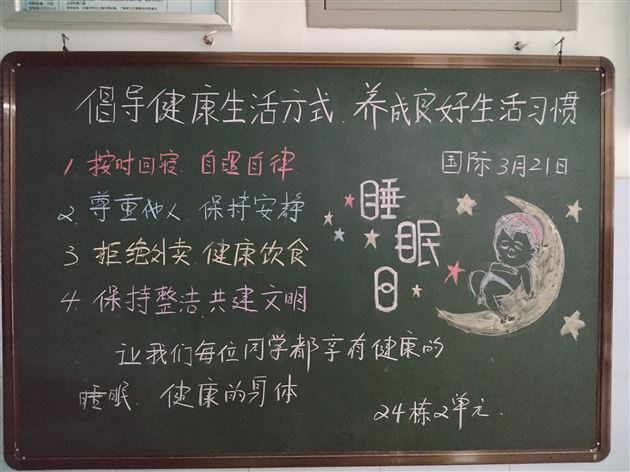 倡导健康生活方式、养成良好生活习惯
国际3月21日
睡眠日
1、按时回寝 自理自律
2、尊重他人 保持安静
3、拒绝外卖 健康饮食
4、保持整洁 共建文明
让我们每位同学都享有健康的
睡眠、健康的身体
24栋2单元.